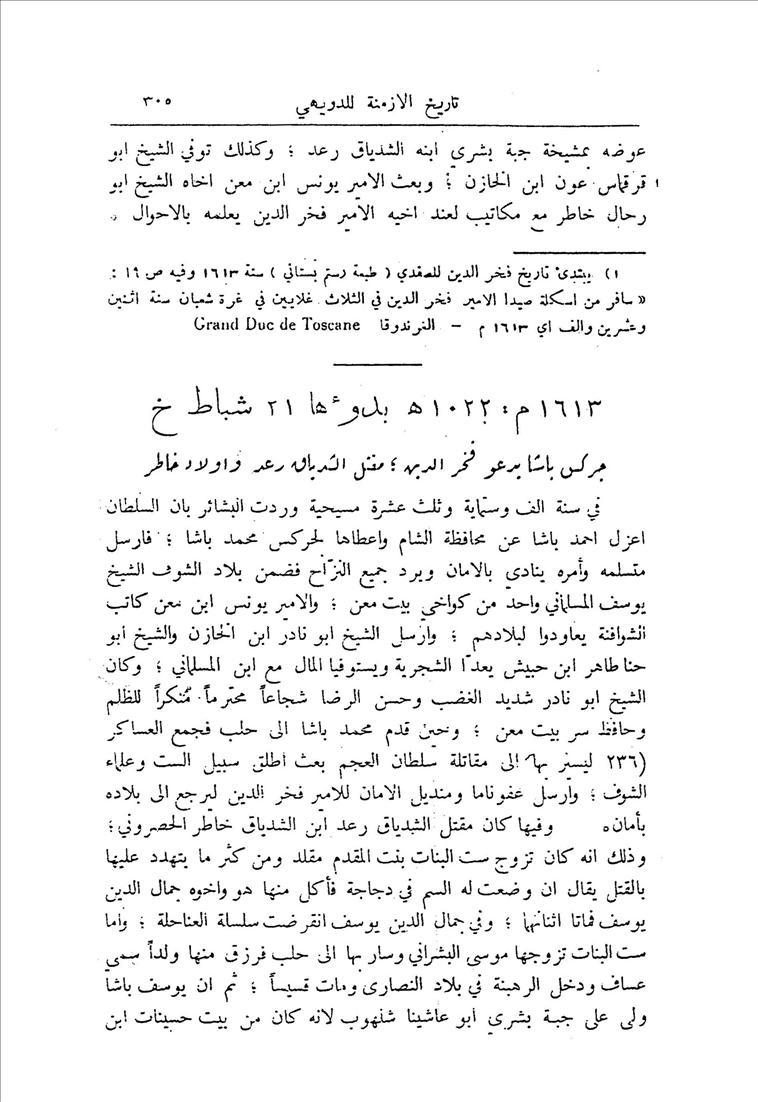 تاريخ الازمنة للدويهي ٣٠٥
عوضه بمشيخة جبة بشري ابنه الشدياق رعد ؛ وكذلك توفي الشيخ ابو
١ قرقماس عون ابن الخازن ؛ وبعث الامير يونس ابن معن اخاه الشيخ ابو
رحال خاطر مع مكاتيب لعند اخيه الامير فخر الدين يعلمه بالاحوال ٥
١) يبتدئ تاريخ فخر الدين للصفدي ( طبعة رستم بستاني ) سنة ١٦١٣ وفيه ص ١٩ :
« سافر من اسكلة صيدا الامير فخر الدين في الثلاث غلايين في غرة شعبان سنة اثنين
وعشرين والف اي ١٦١٣ م – الغرندوقا Grand Duc de Toscane
١٦١٣ م : ١٠٢٢ ه بدوءها ٢١ شباط خ
جركس باشا يدعو فخر الدين ؛ مقتل الشدياق رعد واولاد خاطر
في سنة الف وستماية وثلث عشرة مسيحية وردت البشائر بان السلطان
اعزل احمد باشا عن محافظة الشام واعطاها لجركس محمد باشا ؛ فارسل
متسلمه وأمره ينادي بالامان ويرد جميع النزّاح فضمن بلاد الشوف الشيخ
يوسف المسلماني واحد من كواخي بيت معن ؛ والامير يونس ابن معن كاتب
الشوافنة يعاودوا لبلادهم ؛ وارسل الشيخ ابو نادر ابن الخازن والشيخ ابو
حنا طاهر ابن حبيش يعدّا الشجرية ويستوفيا المال مع ابن المسلماني ؛ وكان
الشيخ ابو نادر شديد الغضب وحسن الرضا شجاعاً محترماً مُنكراً للظلم
وحافظ سر بيت معن ؛ وحين قدم محمد باشا الى حلب فجمع العساكر
(٢٣٦ ليسير بها الى مقاتلة سلطان العجم بعث اطلق سبيل الست وعلماء
الشوف ؛ وارسل عفوناما ومنديل الامان للامير فخر الدين ليرجع الى بلاده
بأمان٥ وفيها كان مقتل الشدياق رعد ابن الشدياق خاطر الحصروني ؛
وذلك انه كان تزوج ست البنات بنت المقدم مقلد ومن كثر ما يتهدد عليها
بالقتل يقال ان وضعت له السم في دجاجة فأكل منها هو واخوه جمال الدين
يوسف فماتا اثنانهما ؛ وفي جمال الدين يوسف انقرضت سلسلة العناحلة ؛ واما
ست البنات تزوجها موسى البشراني وسار بها الى حلب فرزق منها ولداً سمي
عساف ودخل الرهبنة في بلاد النصارى ومات قسيساً ؛ ثم ان يوسف باشا
ولى على جبة بشري ابو عاشينا شلهوب لانه كان من بيت حسينات ابن